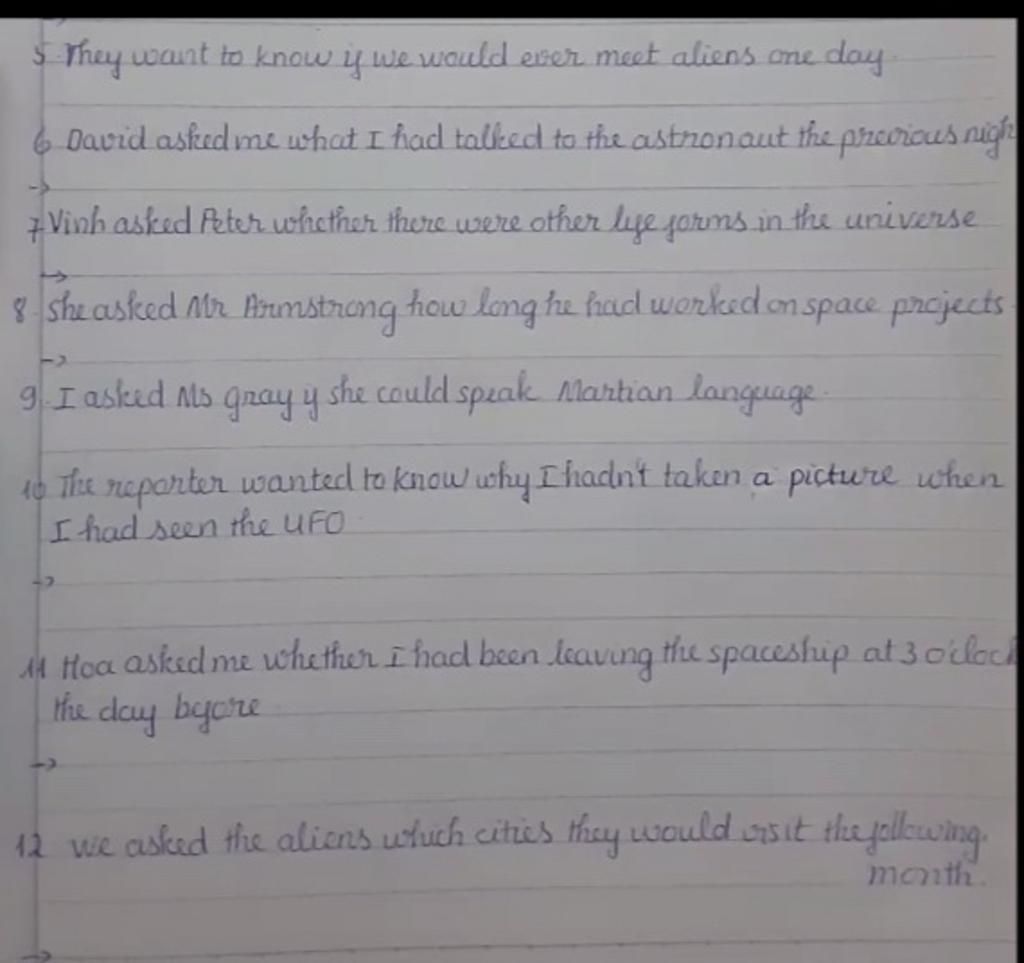 5. They want to know if we would ever meet aliens one day.
6 David asked me what I had talked to the astronaut the previous nigh
->
7 Vinh asked Peter whether there were other life forms in the universe
->
8. She asked Mr Armstrong how long he had worked on space projects
->
9. I asked Ms Gray if she could speak Martian language.
10 The reporter wanted to know why I hadn't taken a picture when
I had seen the UFO.
->
11 Hoa asked me whether I had been leaving the spaceship at 3 o'clock
the day before.
->
12 we asked the aliens which cities they would visit the following
month.
->